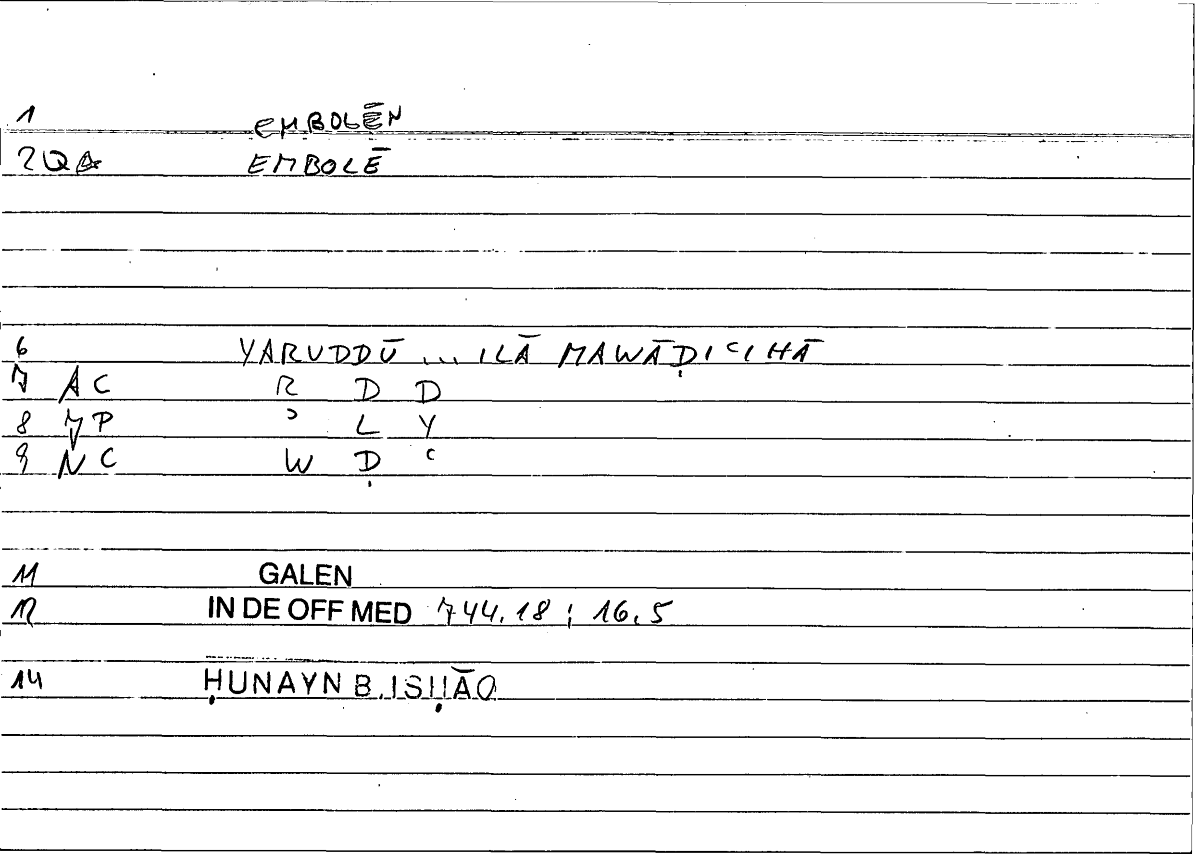 1 EMBOLĒN
2QA EMBOLĒ
6 YARUDDŪ ... ILĀ MAWĀḌIʿIHĀ
7 AC R D D
8 7P ʾ L Y
9 NC W Ḍ ʿ
11 GALEN
12 IN DE OFF MED 744.18 ; 16.5
14 ḤUNAYN B. ISḤĀQ